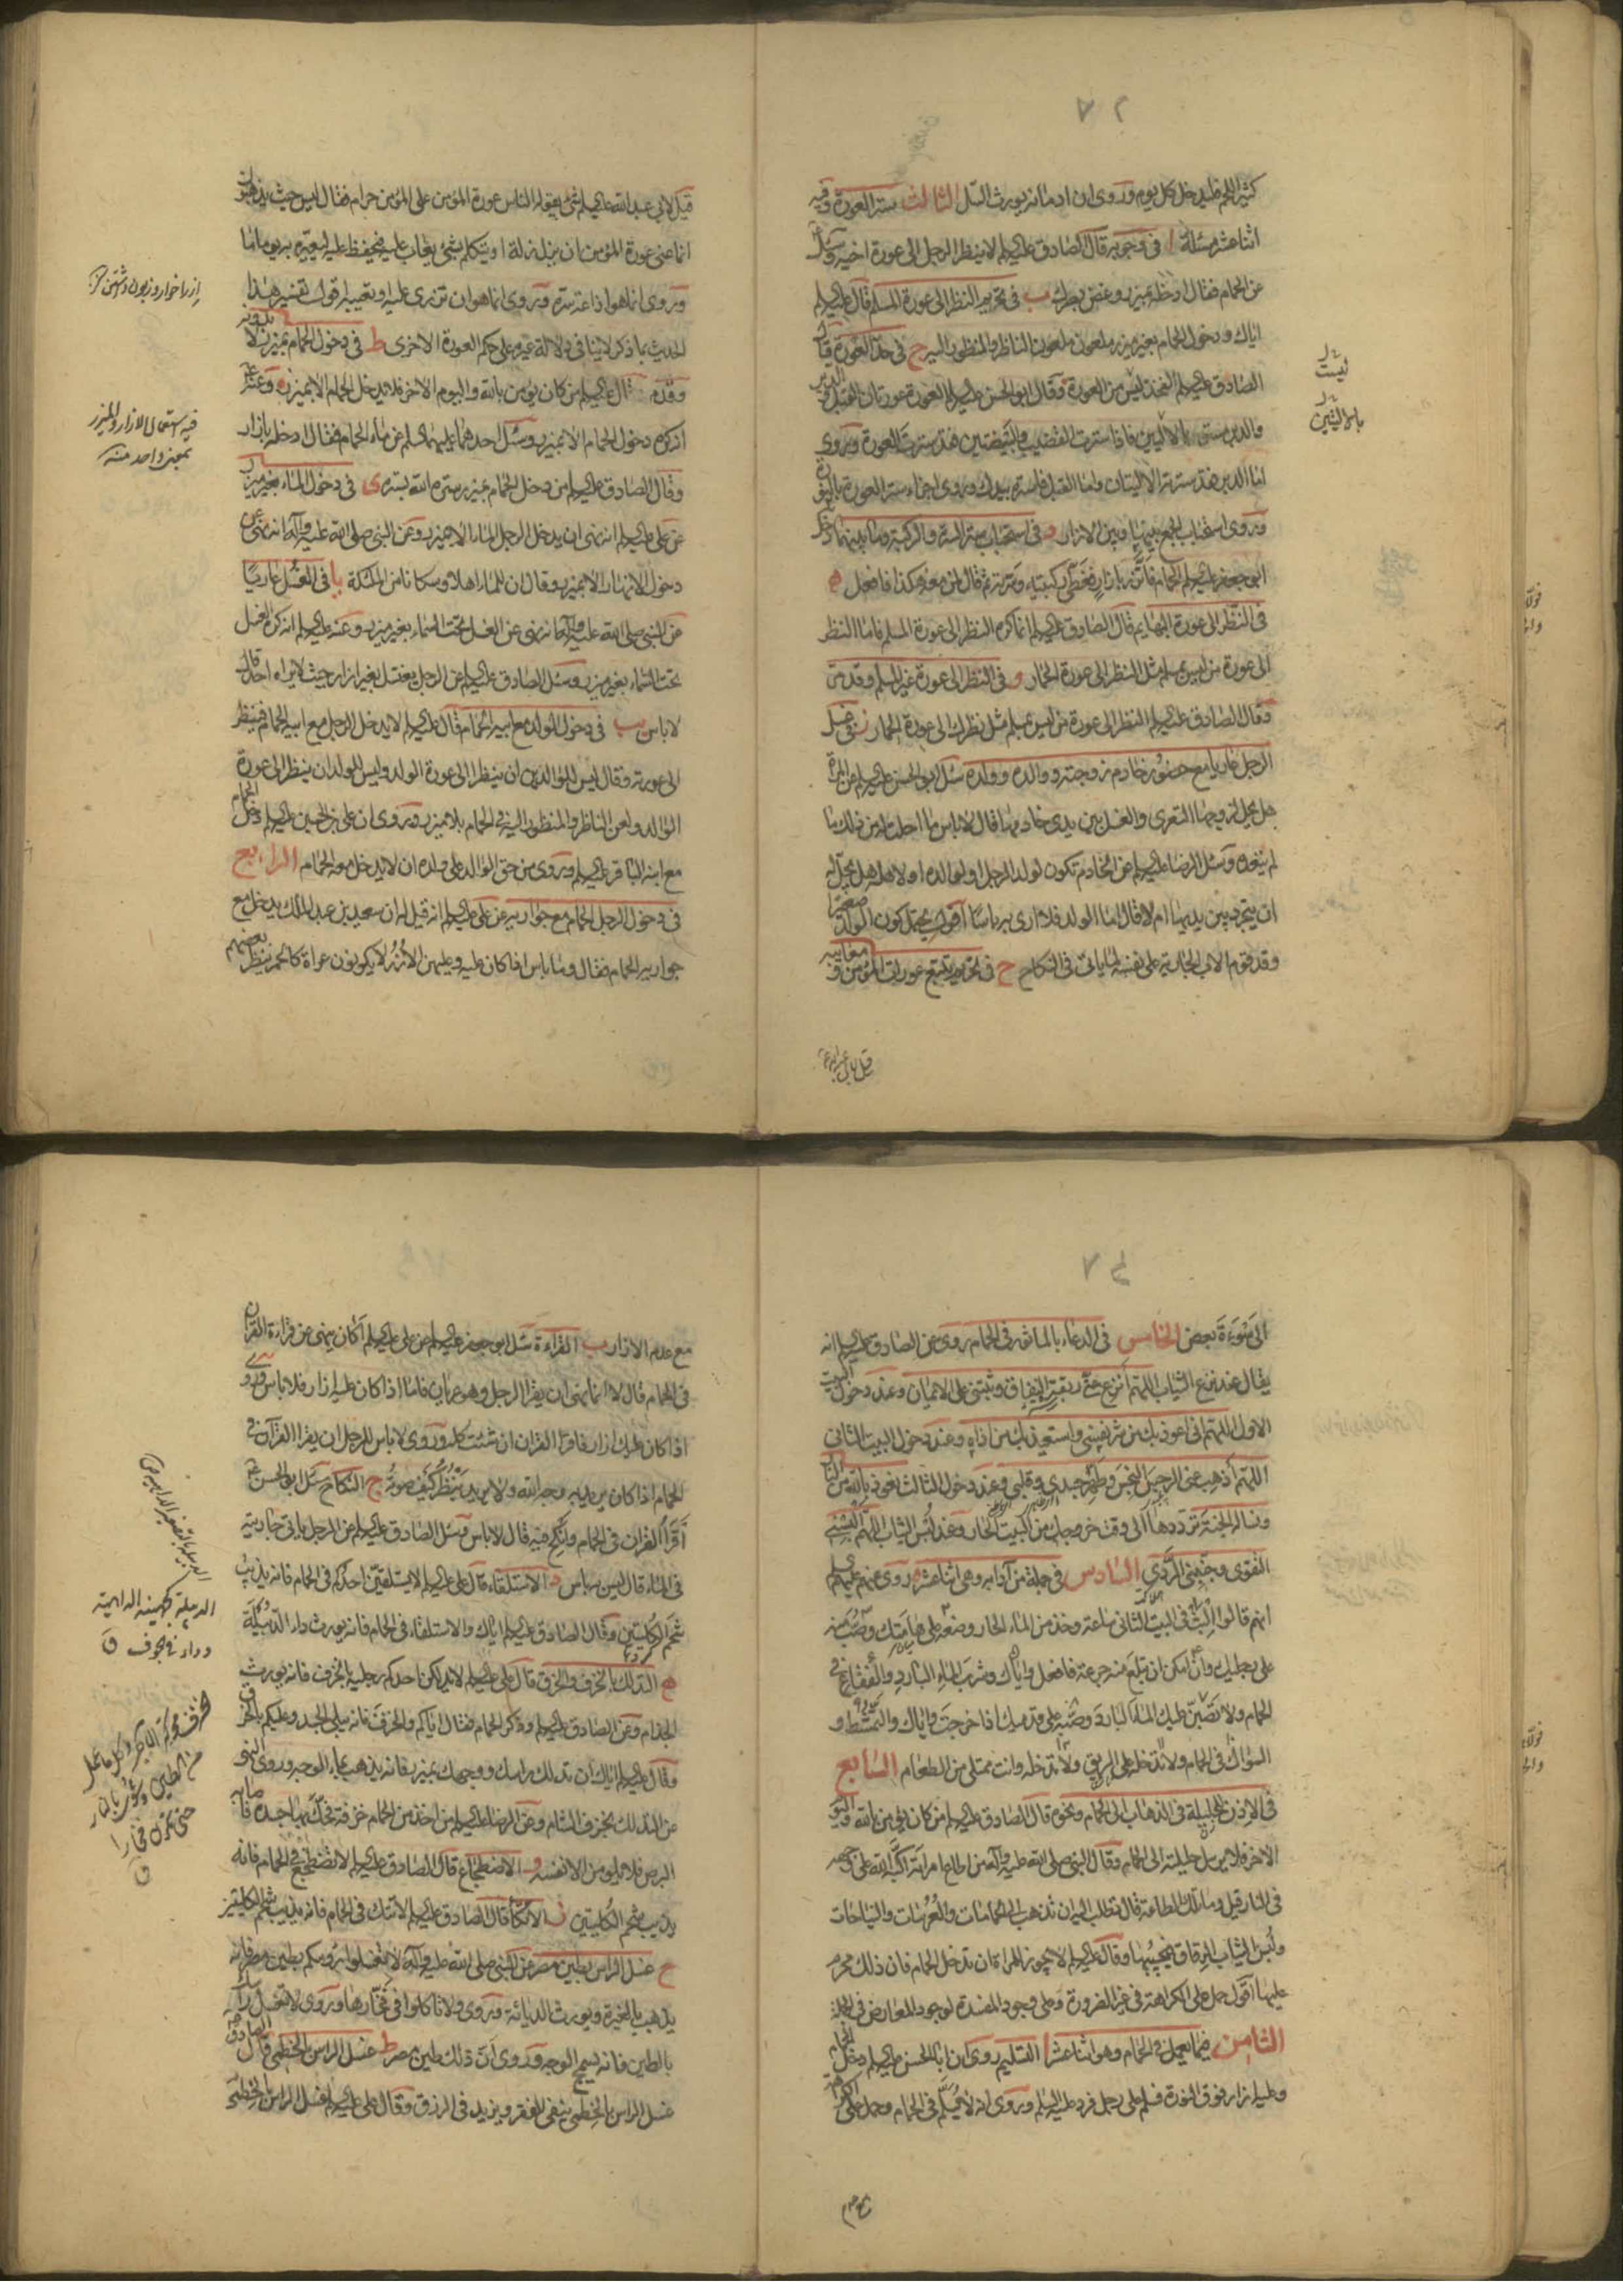 ٧٢
كثير اللحم فليدخل كل يوم وروى ان ادمانه يورث السل الثالث ستر العورة وفيه
اثنا عشر مسئلة ا في وجوبه قال الصادق عليه السلام لا ينظر الرجل الى عورة اخيه وسئل
عن الحمام فقال ادخله بميزر وغض بصرك ب في تحريم النظر الى عورة المسلم قال عليه السلام
اياك ودخول الحمام بغير ميزر ملعون ملعون الناظر والمنظور اليه ج في حد العورة قال
الصادق عليه السلام الفخذ ليس من العورة وقال ابو الحسن عليه السلام العورة عورتان القبل والدبر
والدبر مستور بالاليين فاذا سترت القضيب والبيضتين فقد سترت العورة وروى
اما الدبر فقد سترته الاليتان واما القبل فاستره بيدك وروى اجزاء ستر العورة بالنورة
وروى استحباب الجمع بينها وبين الازار د في استحباب ستر السرة والركبة وما بينهما دخل
ابو جعفر عليه السلام الحمام فاتزر بازار فغطى ركبتيه وسرته ثم قال لمن معه هكذا فافعل ه
في النظر الى عورة البهايم قال الصادق عليه السلام انما كره النظر الى عورة المسلم فاما النظر
الى عورة من ليس بمسلم مثل النظر الى عورة الحمار و في النظر الى عورة غير المسلم وقد مر
وقال الصادق عليه السلام النظر الى عورة من ليس بمسلم مثل نظرك الى عورة الحمار ز في غسل
الرجل عاريا مع حضور خادم زوجته ووالده وولده سئل ابو الحسن عليه السلام عن المراة
هل يحل لزوجها التعري والغسل بين يدي خادمها قال لا باس ما احلت له من ذلك ما
لم يتعده وسئل الرضا عليه السلام عن الخادم تكون لولد الرجل او لوالده او لاهله هل يحل له
ان يتجرد بين يديها ام لا قال اما الولد فلا ارى به باسا اقول يحتمل كون الولد صغيرا
وقد قوم الاب الجارية على نفسه لما ياتي في النكاح ح في تحريم تتبع عورات المؤمن ومعايبه
قيل لابي عبد الله ع
ليست
بالاليتين
قيل لابي عبد الله عليه السلام شئ يقوله الناس عورة المؤمن على المؤمن حرام فقال ليس حيث يذهبون
انما عنى عورة المؤمن ان يزل زلة او يتكلم بشئ يعاب عليه فيحفظ عليه ليعيره به يوما ما
وروى انما هو اذاعة سره وروى انما هو ان تزرى عليه وتعيبه اقول تفسير هذا
الحديث بما ذكر لا ينافي دلالة غيره على حكم العورة الاخرى ط في دخول الحمام بميزر لا بدونه
وقد مر قال عليه السلام من كان يؤمن بالله واليوم الاخر فلا يدخل الحمام الا بميزر وعنه ع
انه كره دخول الحمام الا بميزر وسئل احدهما عليهما السلام عن ماء الحمام فقال ادخله بازار
وقال الصادق عليه السلام من دخل الحمام بميزر ستره الله بستره ى في دخول الماء بغير ميزر
عن علي عليه السلام انه نهى ان يدخل الرجل الماء الا بميزر وعن النبي صلى الله عليه وآله انه نهى عن
دخول الانهار الا بميزر وقال ان للماء اهلا وسكانا من الملئكة يا في الغسل عاريا
عن النبي صلى الله عليه وآله انه نهى عن الغسل تحت السماء بغير ميزر وعنه عليه السلام انه كره الغسل
تحت السماء بغير ميزر وسئل الصادق عليه السلام عن الرجل يغتسل بغير ازار حيث لا يراه احد قال
لا باس يب في دخول الولد مع ابيه الحمام قال عليه السلام لا يدخل الرجل مع ابيه الحمام فينظر
الى عورته وقال ليس للوالدين ان ينظرا الى عورة الولد وليس للولد ان ينظر الى عورة
الوالد ولعن الناظر والمنظور اليه في الحمام بلا ميزر وروى ان علي بن الحسين عليه السلام دخل الحمام
مع ابنه الباقر عليه السلام وروى من حق الوالد على ولده ان لا يدخل معه الحمام الرابع
في دخول الرجل الحمام مع جواريه عن علي عليه السلام انه قيل له ان سعيد بن عبد الملك يدخل مع
جواريه الحمام فقال وما باس اذا كان عليه وعليهن الازر لا يكونون عراة كالحمر ينظر بعضهم
فيه استعمال الازار والميزر
بمعنى واحد منه
٧٤
الى سوءة بعض الخامس في الدعاء بالماثور في الحمام روى عن الصادق عليه السلام انه
يقال عند نزع الثياب اللهم انزع عني ربقة النفاق وثبتني على الايمان وعند دخول البيت
الاول اللهم اني اعوذ بك من شر نفسي واستعيذ بك من اذاه وعند دخول البيت الثاني
اللهم اذهب عني الرجس النجس وطهر جسدي وقلبي وعند دخول الثالث نعوذ بالله من النار
ونساله الجنة تردده الى وقت خروجك من البيت الحار وعند لبس الثياب اللهم البسني
التقوى وجنبني الردى السادس في جملة من آدابه وهي اثنا عشر روى عنهم عليهم السلام
انهم قالوا البث في البيت الثاني ساعة وخذ من الماء الحار وضعه على هامتك وصب منه
على رجليك وان امكن ان تبلع منه جرعة فافعل واياك وشرب الماء البارد والفقاع في
الحمام ولا تصبن عليك الماء البارد وصبه على قدميك اذا خرجت واياك والتمشط و
السواك في الحمام ولا تدخله على الريق ولا تدخله وانت ممتلئ من الطعام السابع
في الاذن للحليلة في الذهاب الى الحمام ونحوه قال الصادق عليه السلام من كان يؤمن بالله واليوم
الاخر فلا يرسل حليلته الى الحمام وقال النبي صلى الله عليه وآله من اطاع امراته اكبه الله على وجهه
في النار قيل وما تلك الطاعة قال تطلب اليه ان تذهب الى الحمامات والعرسات والنياحات
ولبس الثياب الرقاق فيجيبها وقال عليه السلام لا يجوز للمراة ان تدخل الحمام فان ذلك محرم
عليها اقول حمل على الكراهة في غير الضرورة وعلى وجود المفسدة لوجود المعارض في الجملة
الثامن فيما يعمل في الحمام وهو اثنا عشر ا التسليم روى ان ابا الحسن عليه السلام دخل الحمام
وعليه ازار فوق النورة فسلم على رجل فرد عليه السلام وروى انه لا يسلم في الحمام وحمل على الكراهة
مع عدم
مع عدم الازار ب القراءة سئل ابو جعفر عليه السلام عن علي عليه السلام اكان ينهى عن قراءة القرآن
في الحمام قال لا انما نهى ان يقرا الرجل وهو عريان فاما اذا كان عليه ازار فلا باس وروى
اذا كان عليك ازار فاقرا القران ان شئت كله وروى لا باس للرجل ان يقرا القرآن في
الحمام اذا كان يريد به وجه الله ولا يريد ينظر كيف صوته ج النكاح سئل ابو الحسن ع
اقرا القران في الحمام وانكح فيه قال لا باس وسئل الصادق عليه السلام عن الرجل ياتي جاريته
في الماء قال ليس به باس د الاستلقاء قال علي عليه السلام لا يستلقين احدكم في الحمام فانه يذيب
شحم الكليتين وقال الصادق عليه السلام اياك والاستلقاء في الحمام فانه يورث داء الدبيلة
ه التدلك بالخزف والخرق قال علي عليه السلام لا يدلكن احدكم رجليه بالخزف فانه يورث
الجذام وعن الصادق عليه السلام وذكر الحمام فقال اياكم والخزف فانه يبلي الجسد وعليكم بالخرق
وقال عليه السلام اياك ان تدلك راسك ووجهك بميزر فانه يذهب بماء الوجه وروى النهي
عن التدلك بخزف الشام وعن الرضا عليه السلام من اخذ من الحمام خزفة فحك بها جسده فاصابه
البرص فلا يلومن الا نفسه و الاضطجاع قال الصادق عليه السلام لا تضطجع في الحمام فانه
يذيب شحم الكليتين ز الاتكاء قال الصادق عليه السلام لا تتك في الحمام فانه يذيب شحم الكليتين
ح غسل الراس بطين مصر عن النبي صلى الله عليه وآله لا تغسلوا رؤسكم بطين مصر فانه
يذهب بالغيرة ويورث الدياثة وروى ولا تاكلوا في فخارها وروى لا تغسل راسك
بالطين فانه يسمج الوجه وروى ان ذلك طين مصر ط غسل الراس بالخطمي قال الصادق
غسل الراس بالخطمي ينفي الفقر ويزيد في الرزق وقال علي عليه السلام غسل الراس بالخطمي
الدبيلة كجهينة الداهية
وداء في الجوف ق
خزف محركة الجر وكل ما عمل
من الطين وشوى بالنار
حتى يكون فخارا
ق